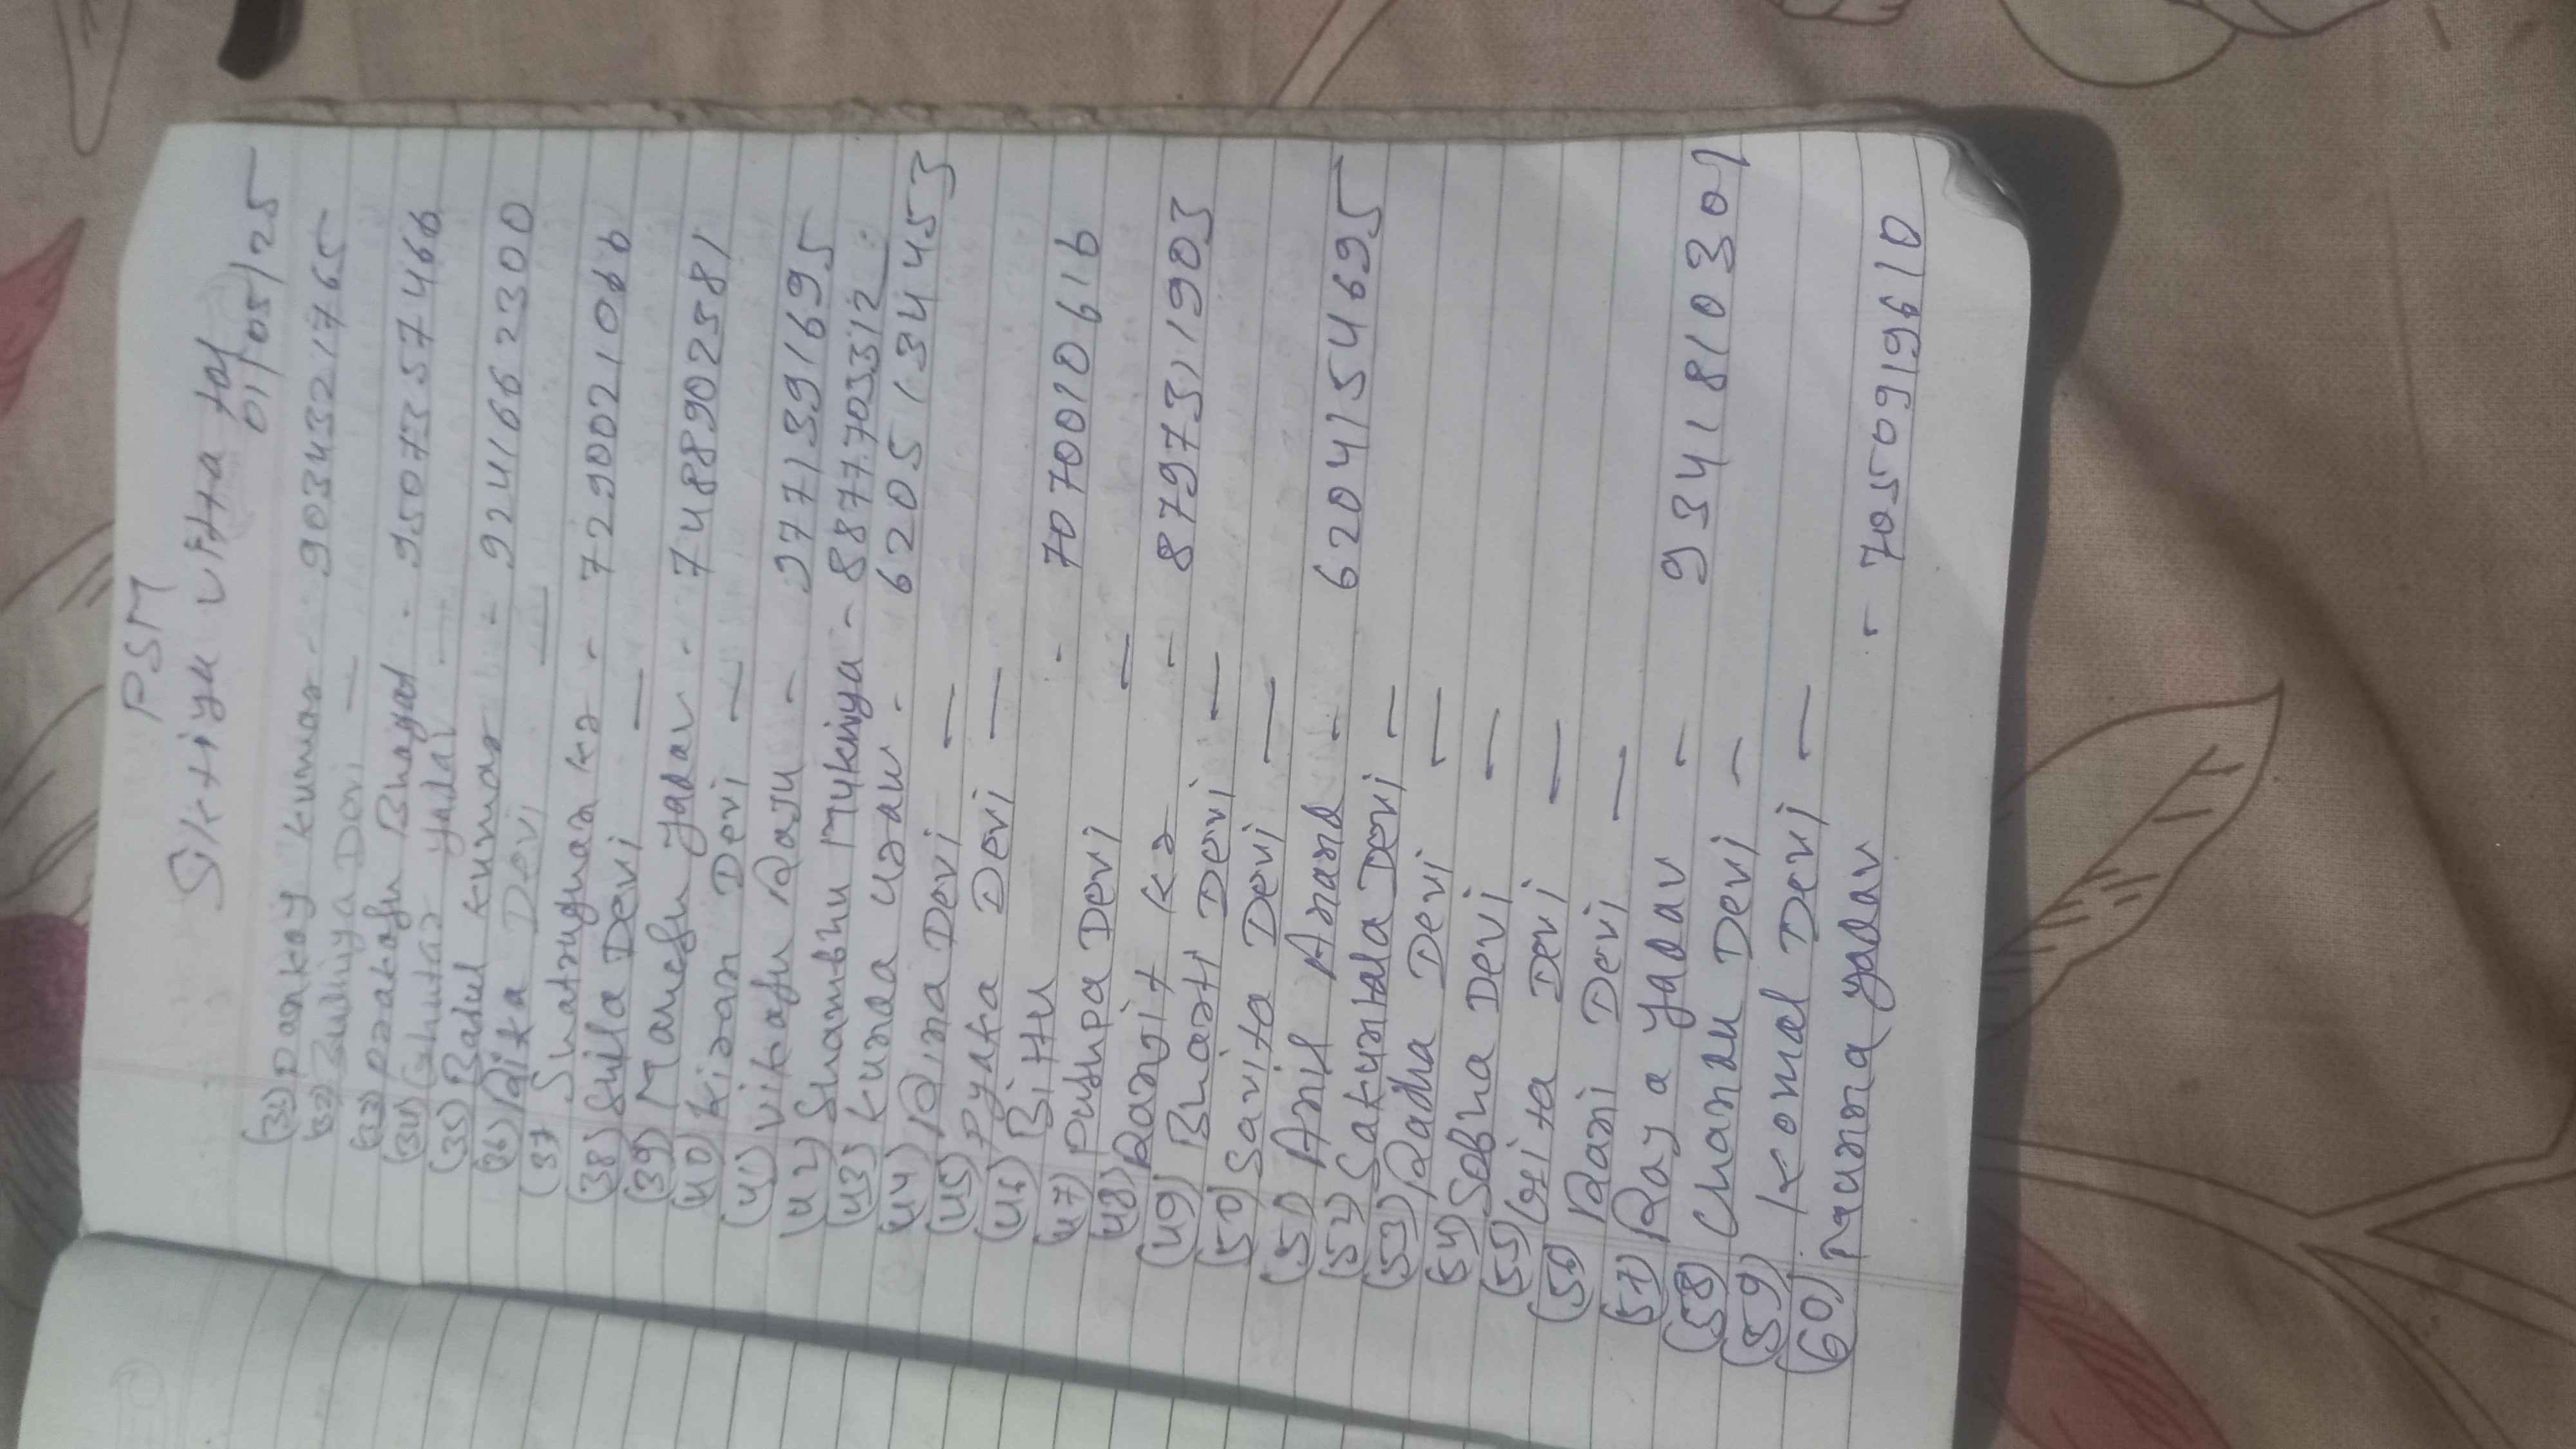 PSM
Siktiya vitta tof
01/05/25
(31) Pankaj kumar - 9034321765
(32) Devi —
(33) Prakash Bhagat - 9507357466
(34) yadav —
(35) Rahul kumar - 9241662300
(36) Rita Devi —
(37 Shatrughan kr - 7290021066
(38) Shila Devi —
(39) Manesh yadav - 7488902581
(40) Kiran Devi —
(41) Vikash Raju - 9771391695
(42) Shambhu Mukhiya - 8877703312
(43) Kunda - 6205134453
(44) Rina Devi —
(45) Pyaka Devi —
(46) Bittu - 7070010616
(47) Pushpa Devi —
(48) Ranjit kr - 8797311903
(49) Bharti Devi —
(50) Savita Devi —
(51) Anil Anand - 6204154695
(52) Sakuntala Devi —
(53) Radha Devi —
(54) Sobha Devi —
(55) Gita Devi —
(56) Rani Devi —
(57) Raja yadav - 9341810301
(58) Devi —
(59) Komal Devi —
(60) Munna yadav - 7050919610